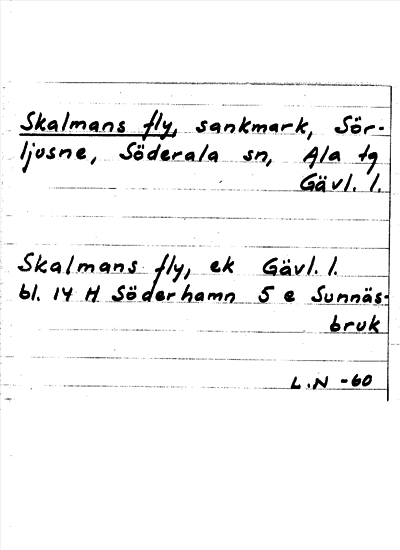 Skalmans fly, sankmark, Sör-
ljusne, Söderala sn, Ala tg
Gävl. l.
Skalmans fly, ek Gävl. l.
bl. 14 H Söderhamn 5 e Sunnäs-
bruk
L.N -60